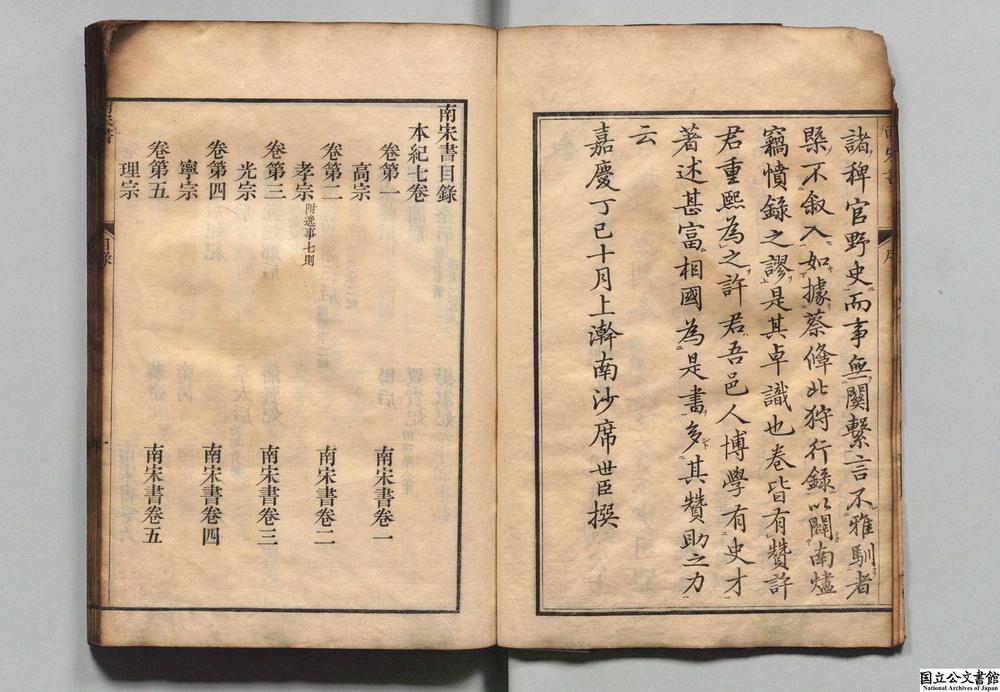 諸稗官野史而事無關繋言不雅馴者
槩不叙入如據蔡鞗北狩行錄以闢南燼
竊憤錄之謬是其卓識也卷皆有贊許
君重熙為之許君吾邑人博學有史才
著述甚富相國為是書多其贊助之力
云
嘉慶丁巳十月上澣南沙席世臣撰
南宋書目錄
本紀七卷
卷第一 南宋書卷一
高宗
卷第二 南宋書卷二
孝宗 附逸事七則
卷第三 南宋書卷三
光宗
卷第四 南宋書卷四
寧宗
卷第五 南宋書卷五
理宗
目錄
国立公文書館
National Archives of Japan